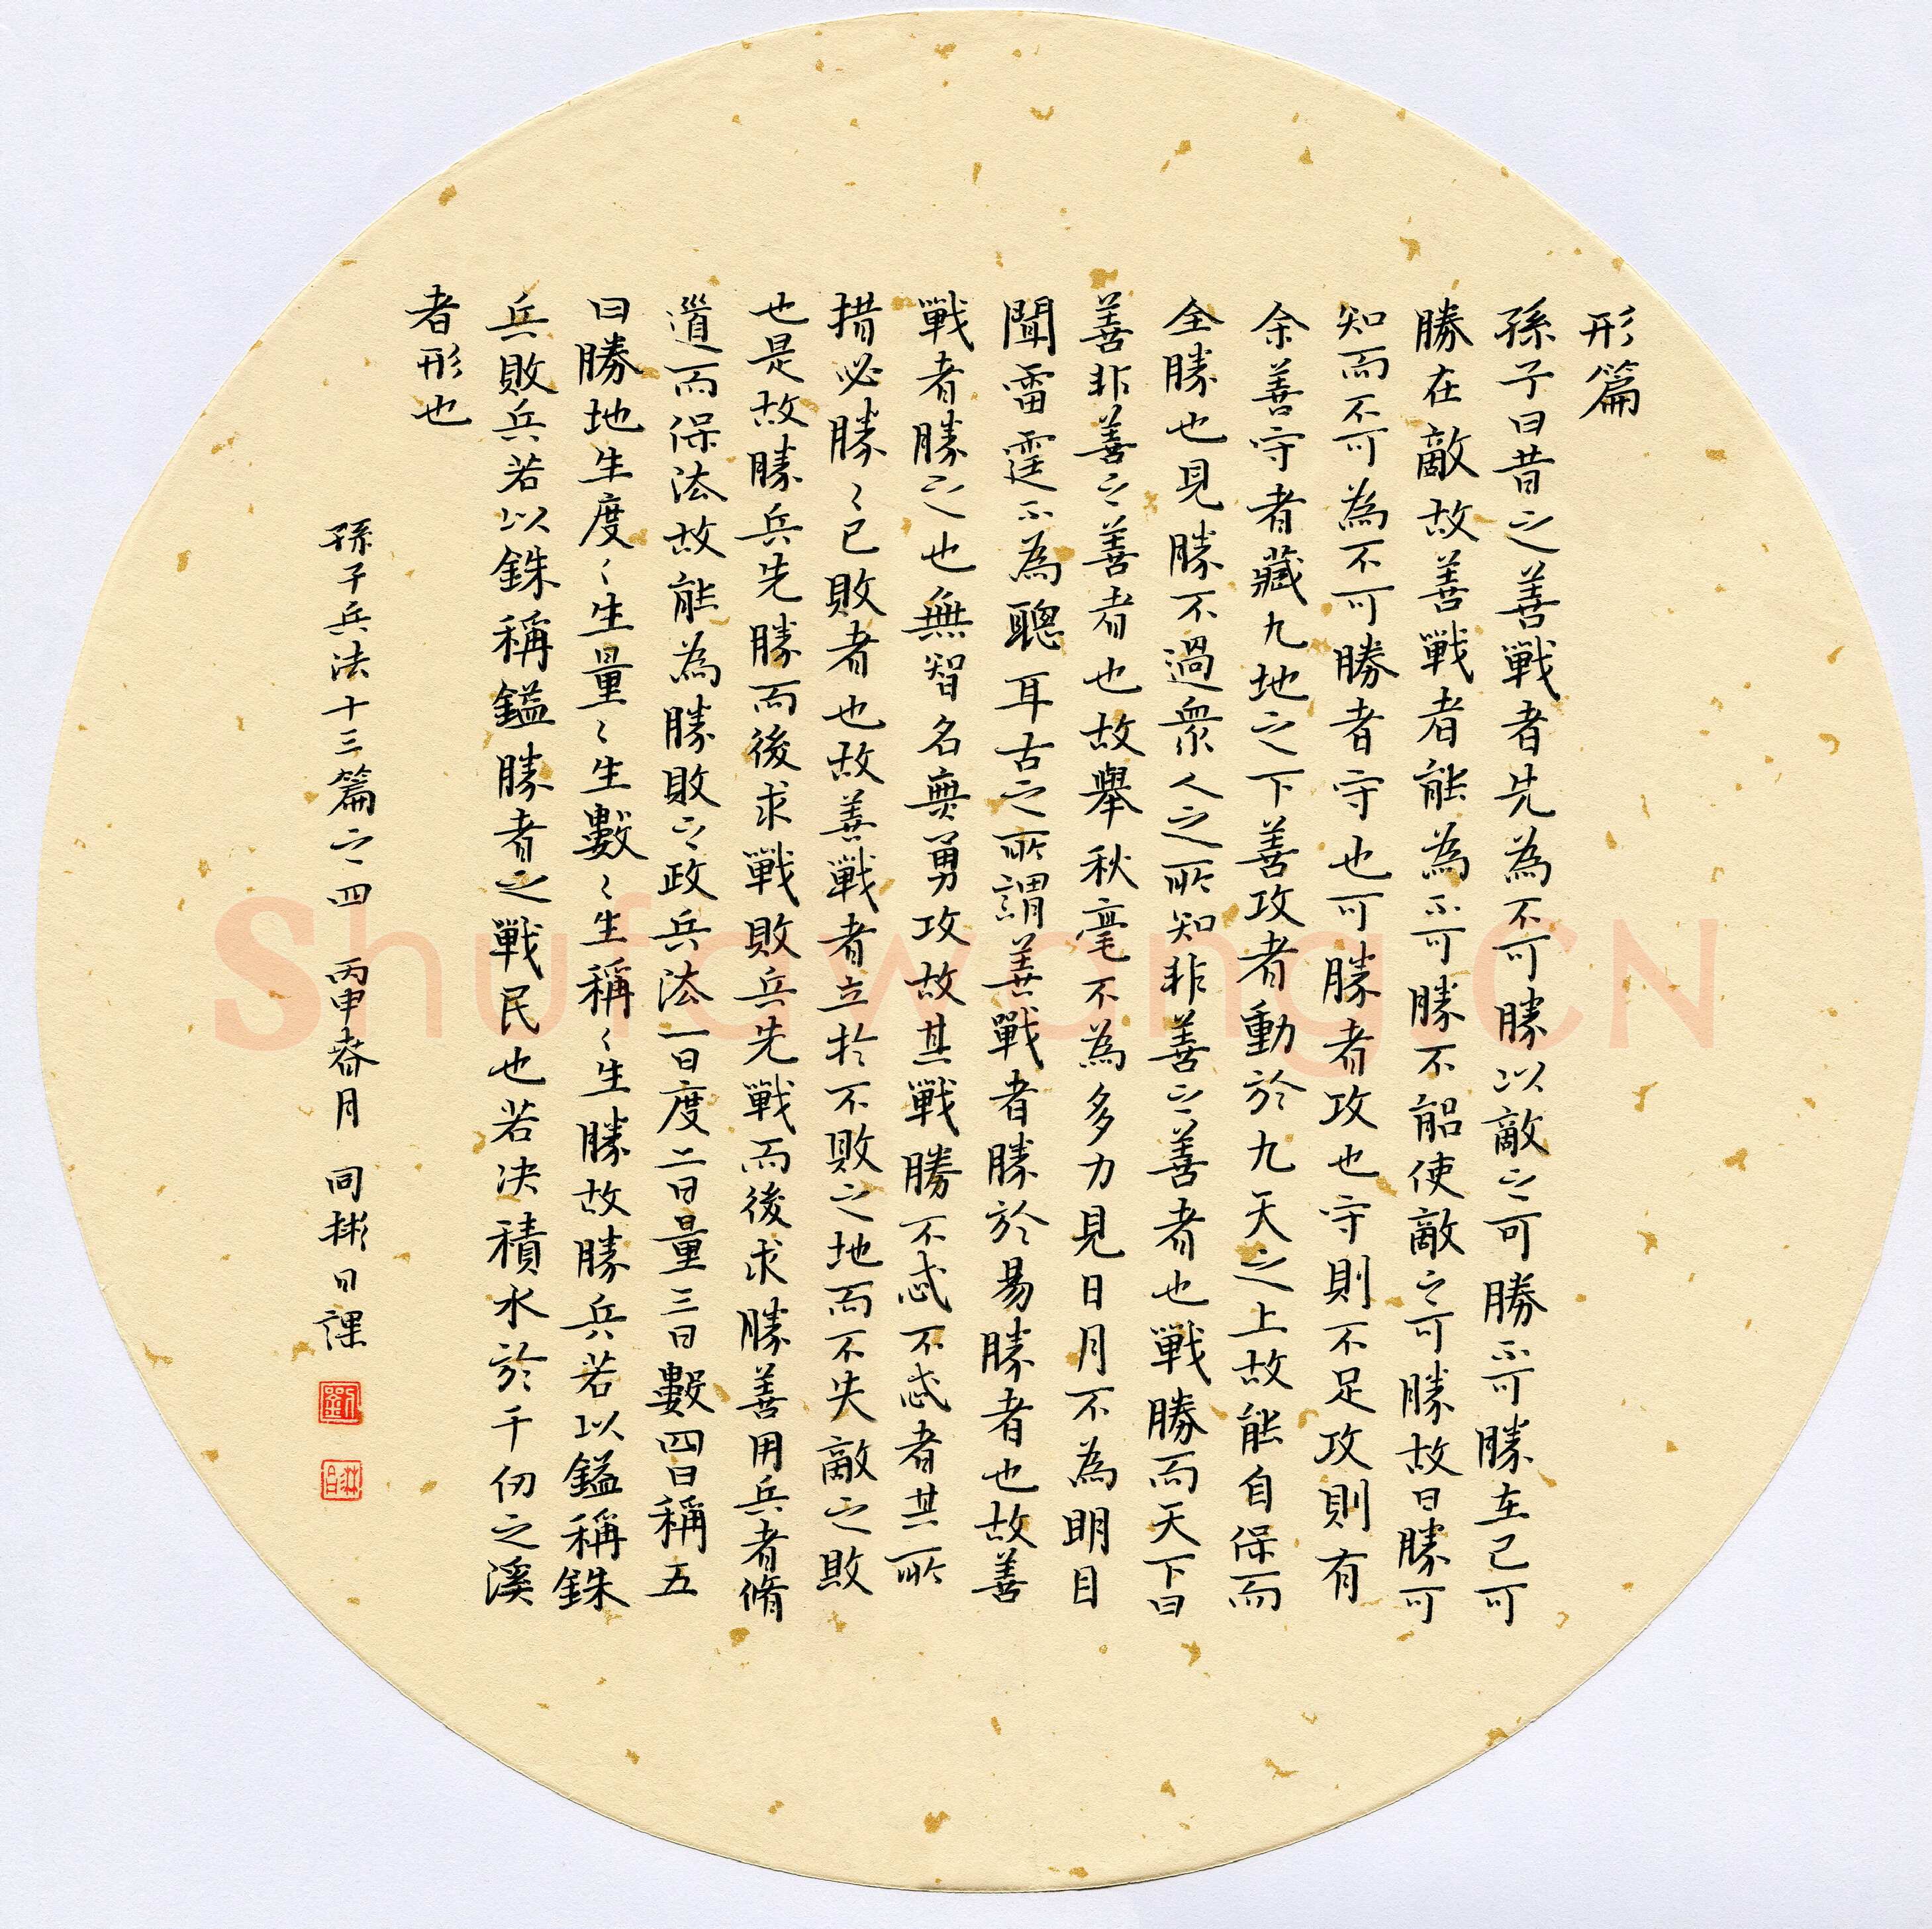 形篇
孫子曰昔之善戰者先為不可勝以敵之可勝不可勝在己可
勝在敵故善戰者能為不可勝不能使敵之可勝故曰勝可
知而不可為不可勝者守也可勝者攻也守則不足攻則有
余善守者藏九地之下善攻者動於九天之上故能自保而
全勝也見勝不過衆人之所知非善之善者也戰勝而天下曰
善非善之善者也故舉秋毫不為多力見日月不為明目
聞雷霆不為聰耳古之所謂善戰者勝於易勝者也故善
戰者勝之也無智名無勇攻故其戰勝不忒不忒者其所
措必勝〻已敗者也故善戰者立於不敗之地而不失敵之敗
也是故勝兵先勝而後求戰敗兵先戰而後求勝善用兵者脩
道而保法故能為勝敗之政兵法一曰度二曰量三曰數四曰稱五
曰勝地生度〻生量〻生數〻生稱〻生勝故勝兵若以鎰稱銖
兵敗兵若以銖稱鎰勝者之戰民也若决積水於千仞之溪
者形也
孫子兵法十三篇之四 丙申春月 同彬日課
劉
Shufawang.CN